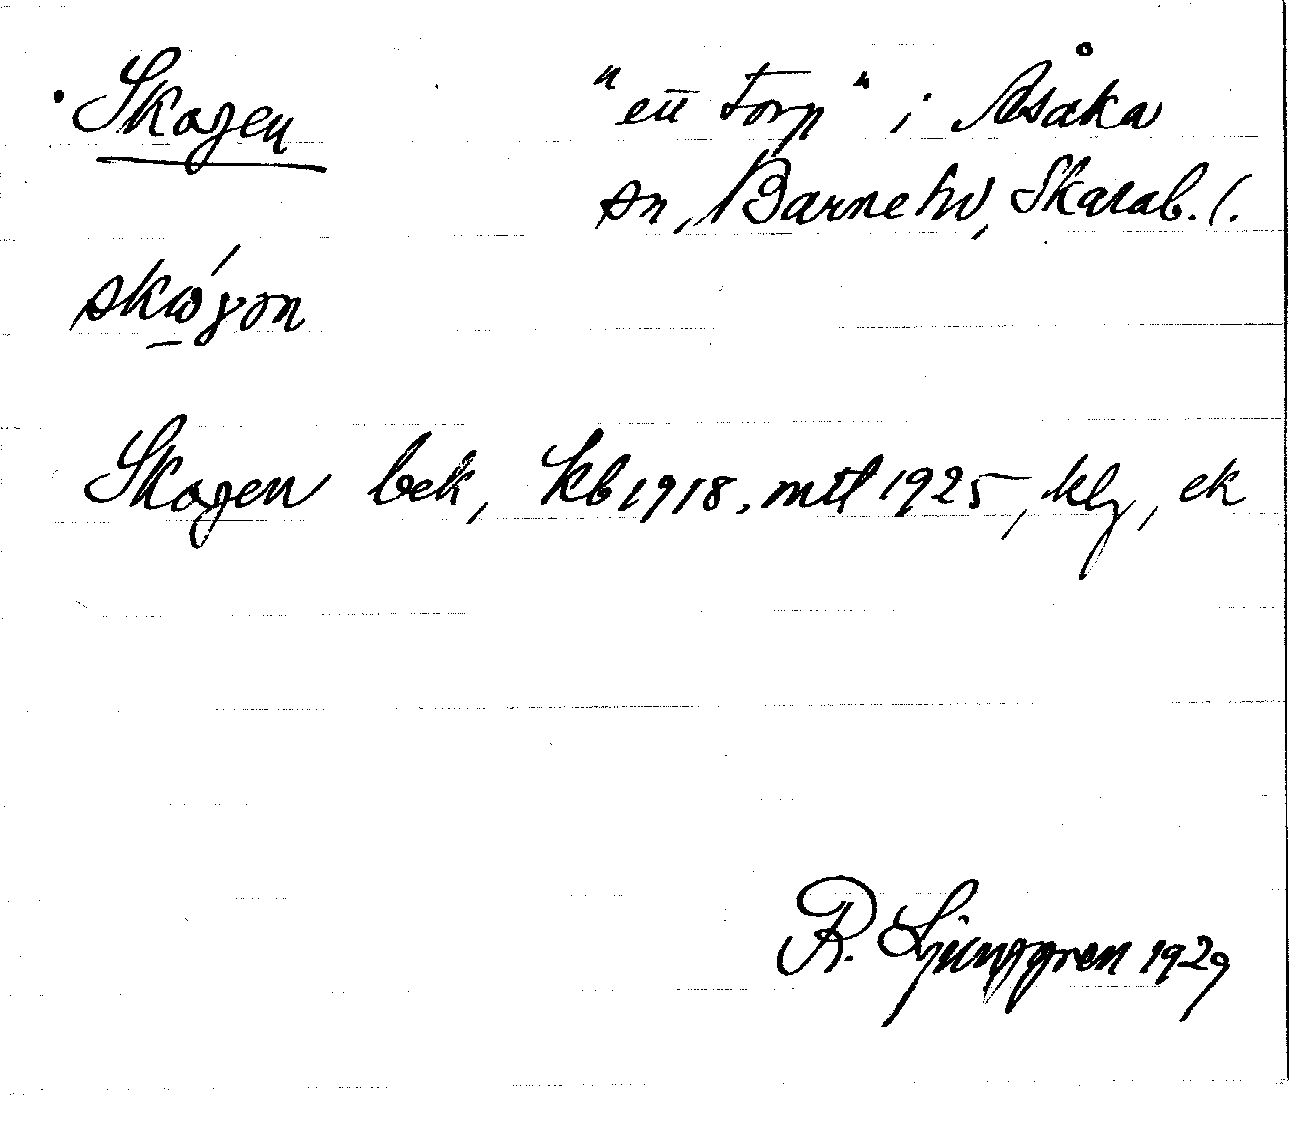 Skogen "ett torp" i Åsaka
sn, Barne hd, Skarab. l.
Skogen bek, kb 1918, mtl 1925, klg, ek
R. Ljunggren 1929